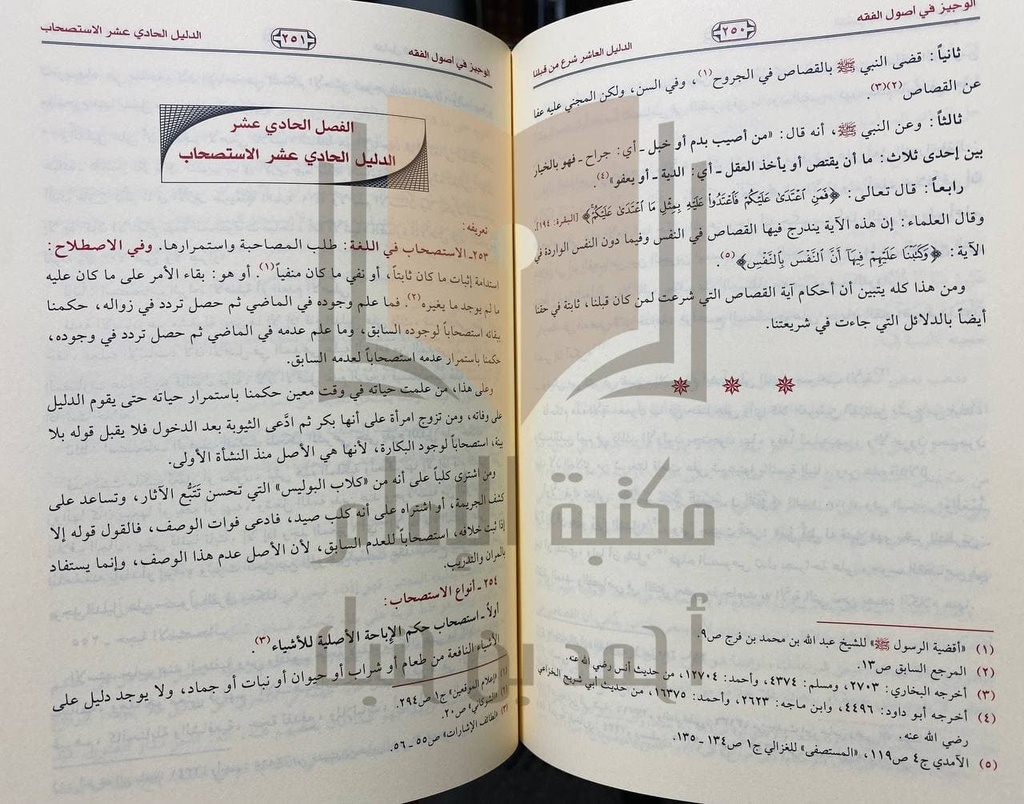 الوجيز في أصول الفقه
٢٥٠
الدليل العاشر شرع من قبلنا
ثانياً: قضى النبي ﷺ بالقصاص في الجروح(١)، وفي السن، ولكن المجني عليه عفا
عن القصاص(٢)(٣).
ثالثاً: وعن النبي ﷺ، أنه قال: «من أصيب بدم أو خبل ـ أي: جراح ـ فهو بالخيار
بين إحدى ثلاث: ما أن يقتص أو يأخذ العقل ـ أي: الدية ـ أو يعفو»(٤).
رابعاً: قال تعالى: ﴿فَمَنِ ٱعْتَدَىٰ عَلَيْكُمْ فَٱعْتَدُوا۟ عَلَيْهِ بِمِثْلِ مَا ٱعْتَدَىٰ عَلَيْكُمْ﴾ [البقرة: ١٩٤].
وقال العلماء: إن هذه الآية يندرج فيها القصاص في النفس وفيما دون النفس الواردة في
الآية: ﴿وَكَتَبْنَا عَلَيْهِمْ فِيهَآ أَنَّ ٱلنَّفْسَ بِٱلنَّفْسِ﴾(٥).
ومن هذا كله يتبين أن أحكام آية القصاص التي شرعت لمن كان قبلنا، ثابتة في حقنا
أيضاً بالدلائل التي جاءت في شريعتنا.
(١) «أقضية الرسول ﷺ» للشيخ عبد الله بن محمد بن فرج ص٩.
(٢) المرجع السابق ص١٣.
(٣) أخرجه البخاري: ٢٧٠٣، ومسلم: ٤٣٧٤، وأحمد: ١٢٧٠٤، من حديث أنس رضي الله عنه.
(٤) أخرجه أبو داود: ٤٤٩٦، وابن ماجه: ٢٦٢٣، وأحمد: ١٦٣٧٥، من حديث أبي شريح الخزاعي
رضي الله عنه.
(٥) الآمدي ج٤ ص١١٩، «المستصفى» للغزالي ج١ ص١٣٤ ـ ١٣٥.
الوجيز في أصول الفقه
٢٥١
الدليل الحادي عشر الاستصحاب
الفصل الحادي عشر
الدليل الحادي عشر الاستصحاب
تعريفه:
٢٥٣ـ الاستصحاب في اللغة: طلب المصاحبة واستمرارها. وفي الاصطلاح:
استدامة إثبات ما كان ثابتاً، أو نفي ما كان منفياً(١). أو هو: بقاء الأمر على ما كان عليه
ما لم يوجد ما يغيره(٢). فما علم وجوده في الماضي ثم حصل تردد في زواله، حكمنا
ببقائه استصحاباً لوجوده السابق، وما علم عدمه في الماضي ثم حصل تردد في وجوده،
حكمنا باستمرار عدمه استصحاباً لعدمه السابق.
وعلى هذا، من علمت حياته في وقت معين حكمنا باستمرار حياته حتى يقوم الدليل
على وفاته، ومن تزوج امرأة على أنها بكر ثم ادَّعى الثيوبة بعد الدخول فلا يقبل قوله بلا
بينة، استصحاباً لوجود البكارة، لأنها هي الأصل منذ النشأة الأولى.
ومن اشترى كلباً على أنه من «كلاب البوليس» التي تحسن تَتَبُّع الآثار، وتساعد على
كشف الجريمة، أو اشتراه على أنه كلب صيد، فادعى فوات الوصف، فالقول قوله إلا
إذا ثبت خلافه، استصحاباً للعدم السابق، لأن الأصل عدم هذا الوصف، وإنما يستفاد
بالمران والتدريب.
٢٥٤ ـ أنواع الاستصحاب:
أولاً ـ استصحاب حكم الإباحة الأصلية للأشياء(٣)
الأشياء النافعة من طعام أو شراب أو حيوان أو نبات أو جماد، ولا يوجد دليل على
(١) «إعلام الموقعين» ج١ ص٢٩٤.
(٢) «الشوكاني» ص٢٠.
(٣) «لطائف الإشارات» ص٥٥ ـ ٥٦.
مكتبة
أحمد